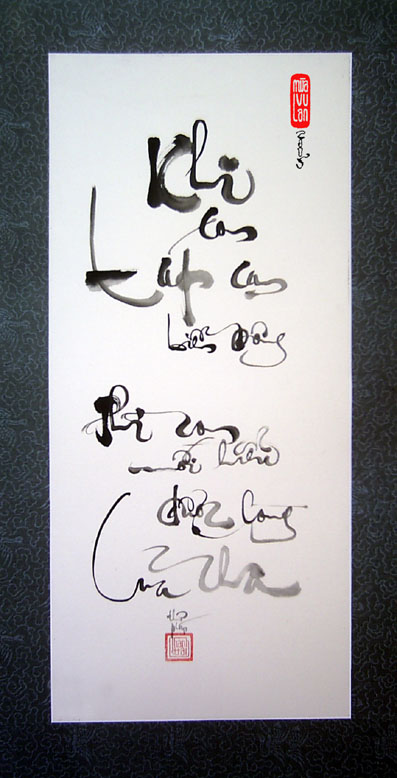 mùa
VU
Lan
Khi
con
tát cạn
biển đông
Thì con
mới hiểu
được lòng
Của cha